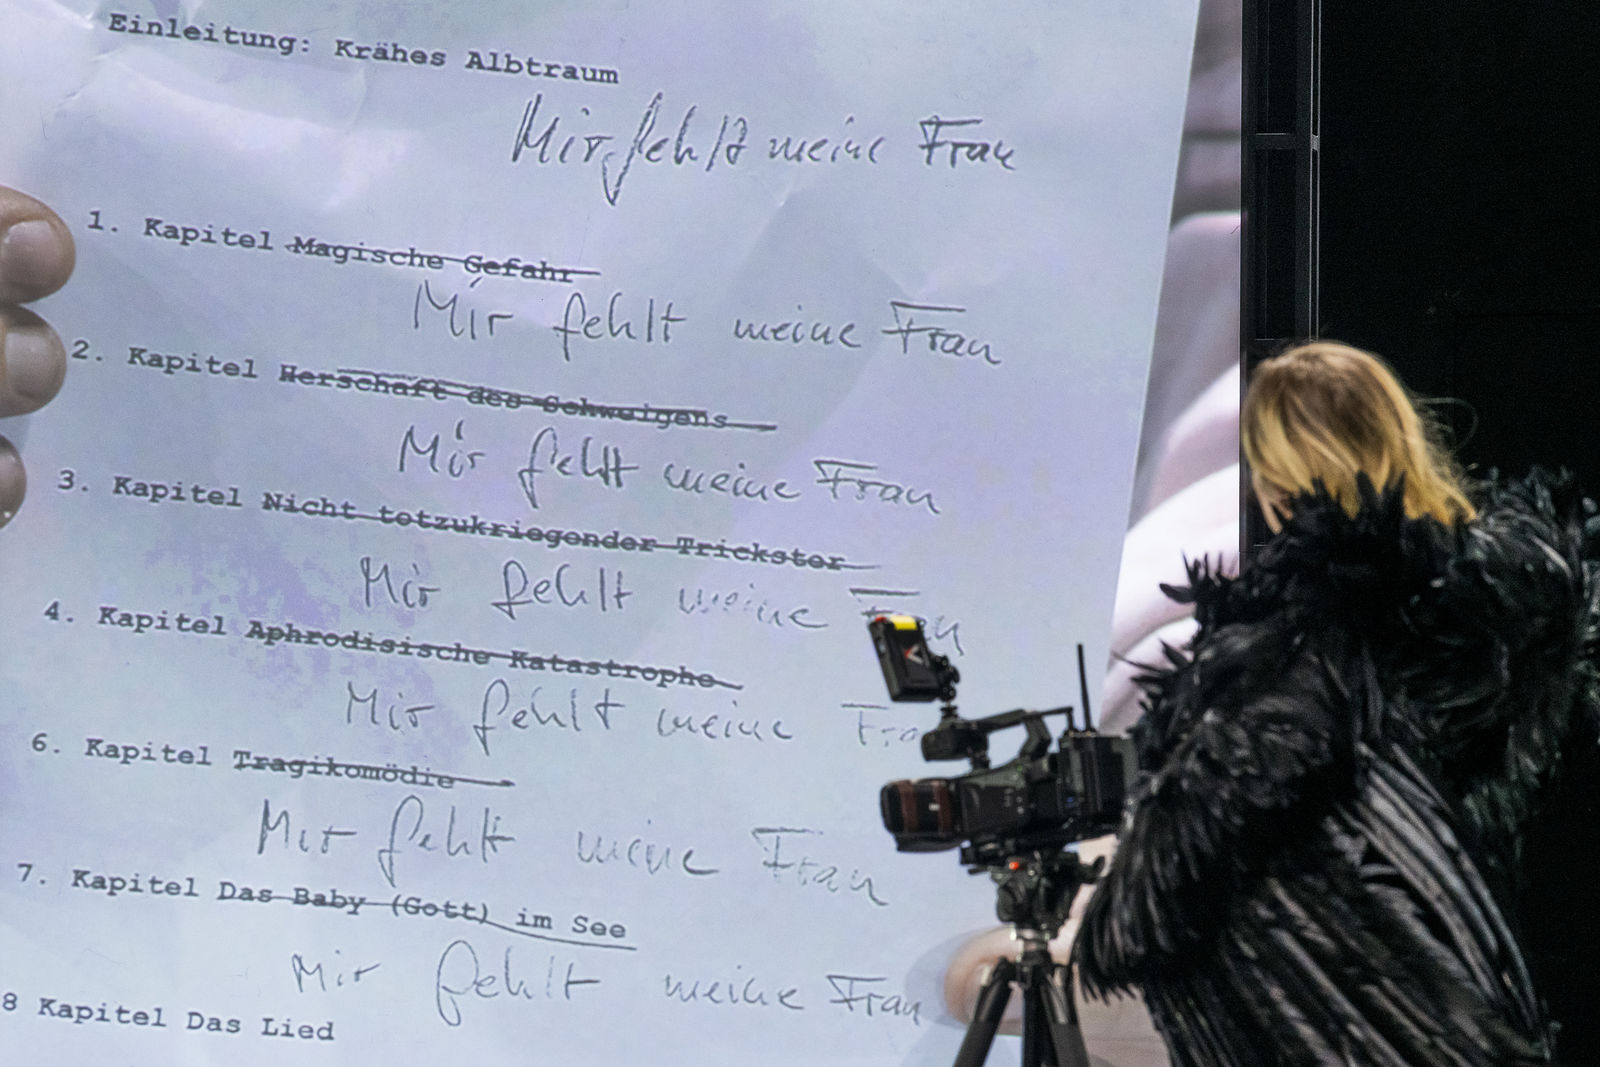 Einleitung: Krähes Albtraum
Mir fehlt meine Frau
1. Kapitel Magische Gefahr
Mir fehlt meine Frau
2. Kapitel Herschaft des Schweigens
Mir fehlt meine Frau
3. Kapitel Nicht totzukriegender Trickster
Mir fehlt meine Frau
4. Kapitel Aphrodisische Katastrophe
Mir fehlt meine Fra
6. Kapitel Tragikomödie
Mir fehlt meine Frau
7. Kapitel Das Baby (Gott) im See
Mir fehlt meine Frau
8 Kapitel Das Lied